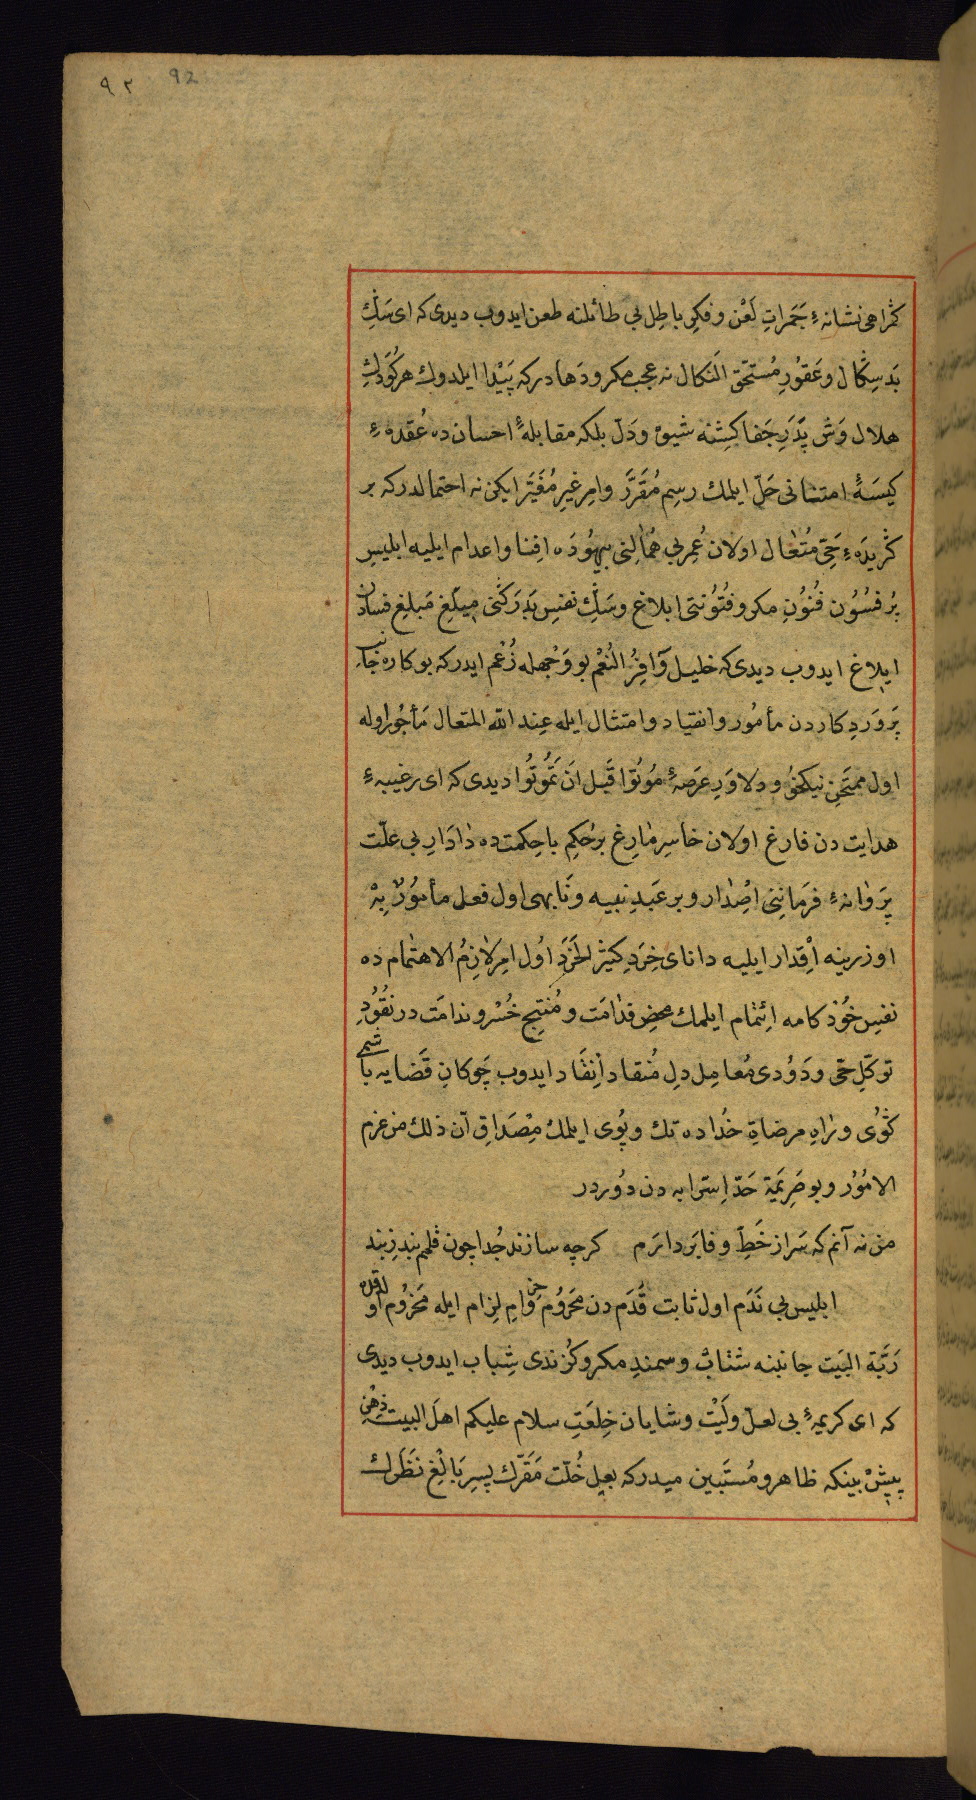 ٩٢ 92
كمراهى نشانهٔ جَمَراتِ لَعْن و فكرِ باطِل بى طائلنه طعن ايدوب ديدى كه اى سَڭِ
بَد سِڭَال و عَقُورِ مُسْتَحَقّ النَكال نه عجب مكر و دَهادركه پَيْدا ايلدوڭ هر كُودَكِ
هلال وَش پَدَرِ جَفا كِشنه شيوۀ و دَلّ بلكه مقابلهٔ احسان ده عُقدهٔ
كيسهٔ امتنانى حَلّ ايلمك رسمِ مُقَرَّر و امرِ غيرِ مُغَيَّر ايكن نه احتمالدركه بر
كُزيدهٔ حَىِّ مُتَعَال اولان عُمرِ بى هُمَالنى بيهُودَه افنا و اعدام ايليه ابليسِ
پُر فسُون فُنُونِ مكر و فُتُونتى ابلاغ و سَڭِ نفسِ بَدرَكنى مَبلَغِ فساد
ايلاغ ايدوب ديدى كه خليلِ وَافِرُ النُعْم بو وَجْهله زُعْم ايدركه بو كاره جانبِ
پَروَردِكاردن مأمُور و انقياد و امتثال ايله عِند الله المتعال مَأجُور اوله
اول ممتحَنِ نيكخُو و دلاوَرِ عَرَصهٔ مُوتُوا قَبلَ اَن تَمُوتُوا ديدى كه اى رغيبهٔ
هدايت دن فارغ اولان خاسِرِ مَارِغ بر حكِمِ باحِكمت ده دَادَارِ بى علّت
پَروَانهٔ فرَمانِنى اِصْدَار و بر عَبدِ نبيه و نَابهى اول فعل مأمُورٌ بِهْ
اوزرينه اِقْدار ايليه داناى خِرَد كيشِ الخِرَد اول امرِ لازِمُ الاهتمام ده
نفسِ خُود كامه ائتمام ايلمك محضِ فدامَت و مُنتِجِ خُسْر و ندامَت در نقُودِ
توكّلِ حَىِّ وَدُودى مُعامِل دلِ مُنقاد اِنقاد ايدوب چَوكانِ قَضايه با
كُوى و رَاهِ مرضاةِ خُداده تك و پُوى ايلمك مِصْدَاقِ اَنّ ذلك من عزم
الامُور و بو صَرِيمَة حَدِّ اِسترابه دن دُوردر
من نه آنم كه سَر از خَطّ وفا بَردارَم كرچه سازند جُدا چون قلمم بند زبند
ابليس بى نَدَم اول ثابت قَدَم دن مَحْرُوم و امرِ لِزام ايله مَخْزُوم او
رَبَّة البَيت جانبنه شتاب و سمندِ مكر و كُزندى شِباب ايدوب ديدى
كه اى كريمهٔ بى لعلّ و لَيْت و شايان خِلعَتِ سلام عليكم اهلَ البيت ذِهْنِ
پيشْ بينكه ظاهر و مُستَبين ميدركه بعلِ خُلّت مَقَرّك پسرِ بَالغِ نَظَرك